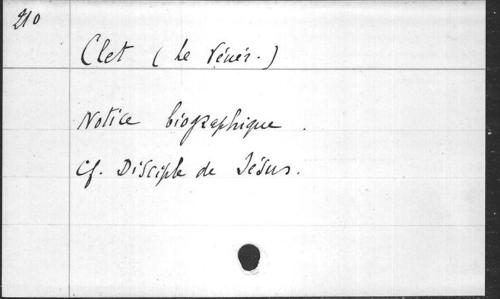 210
Clet (Le Vénér.)
Notice biographique.
Cf. Disciple de Jésus.